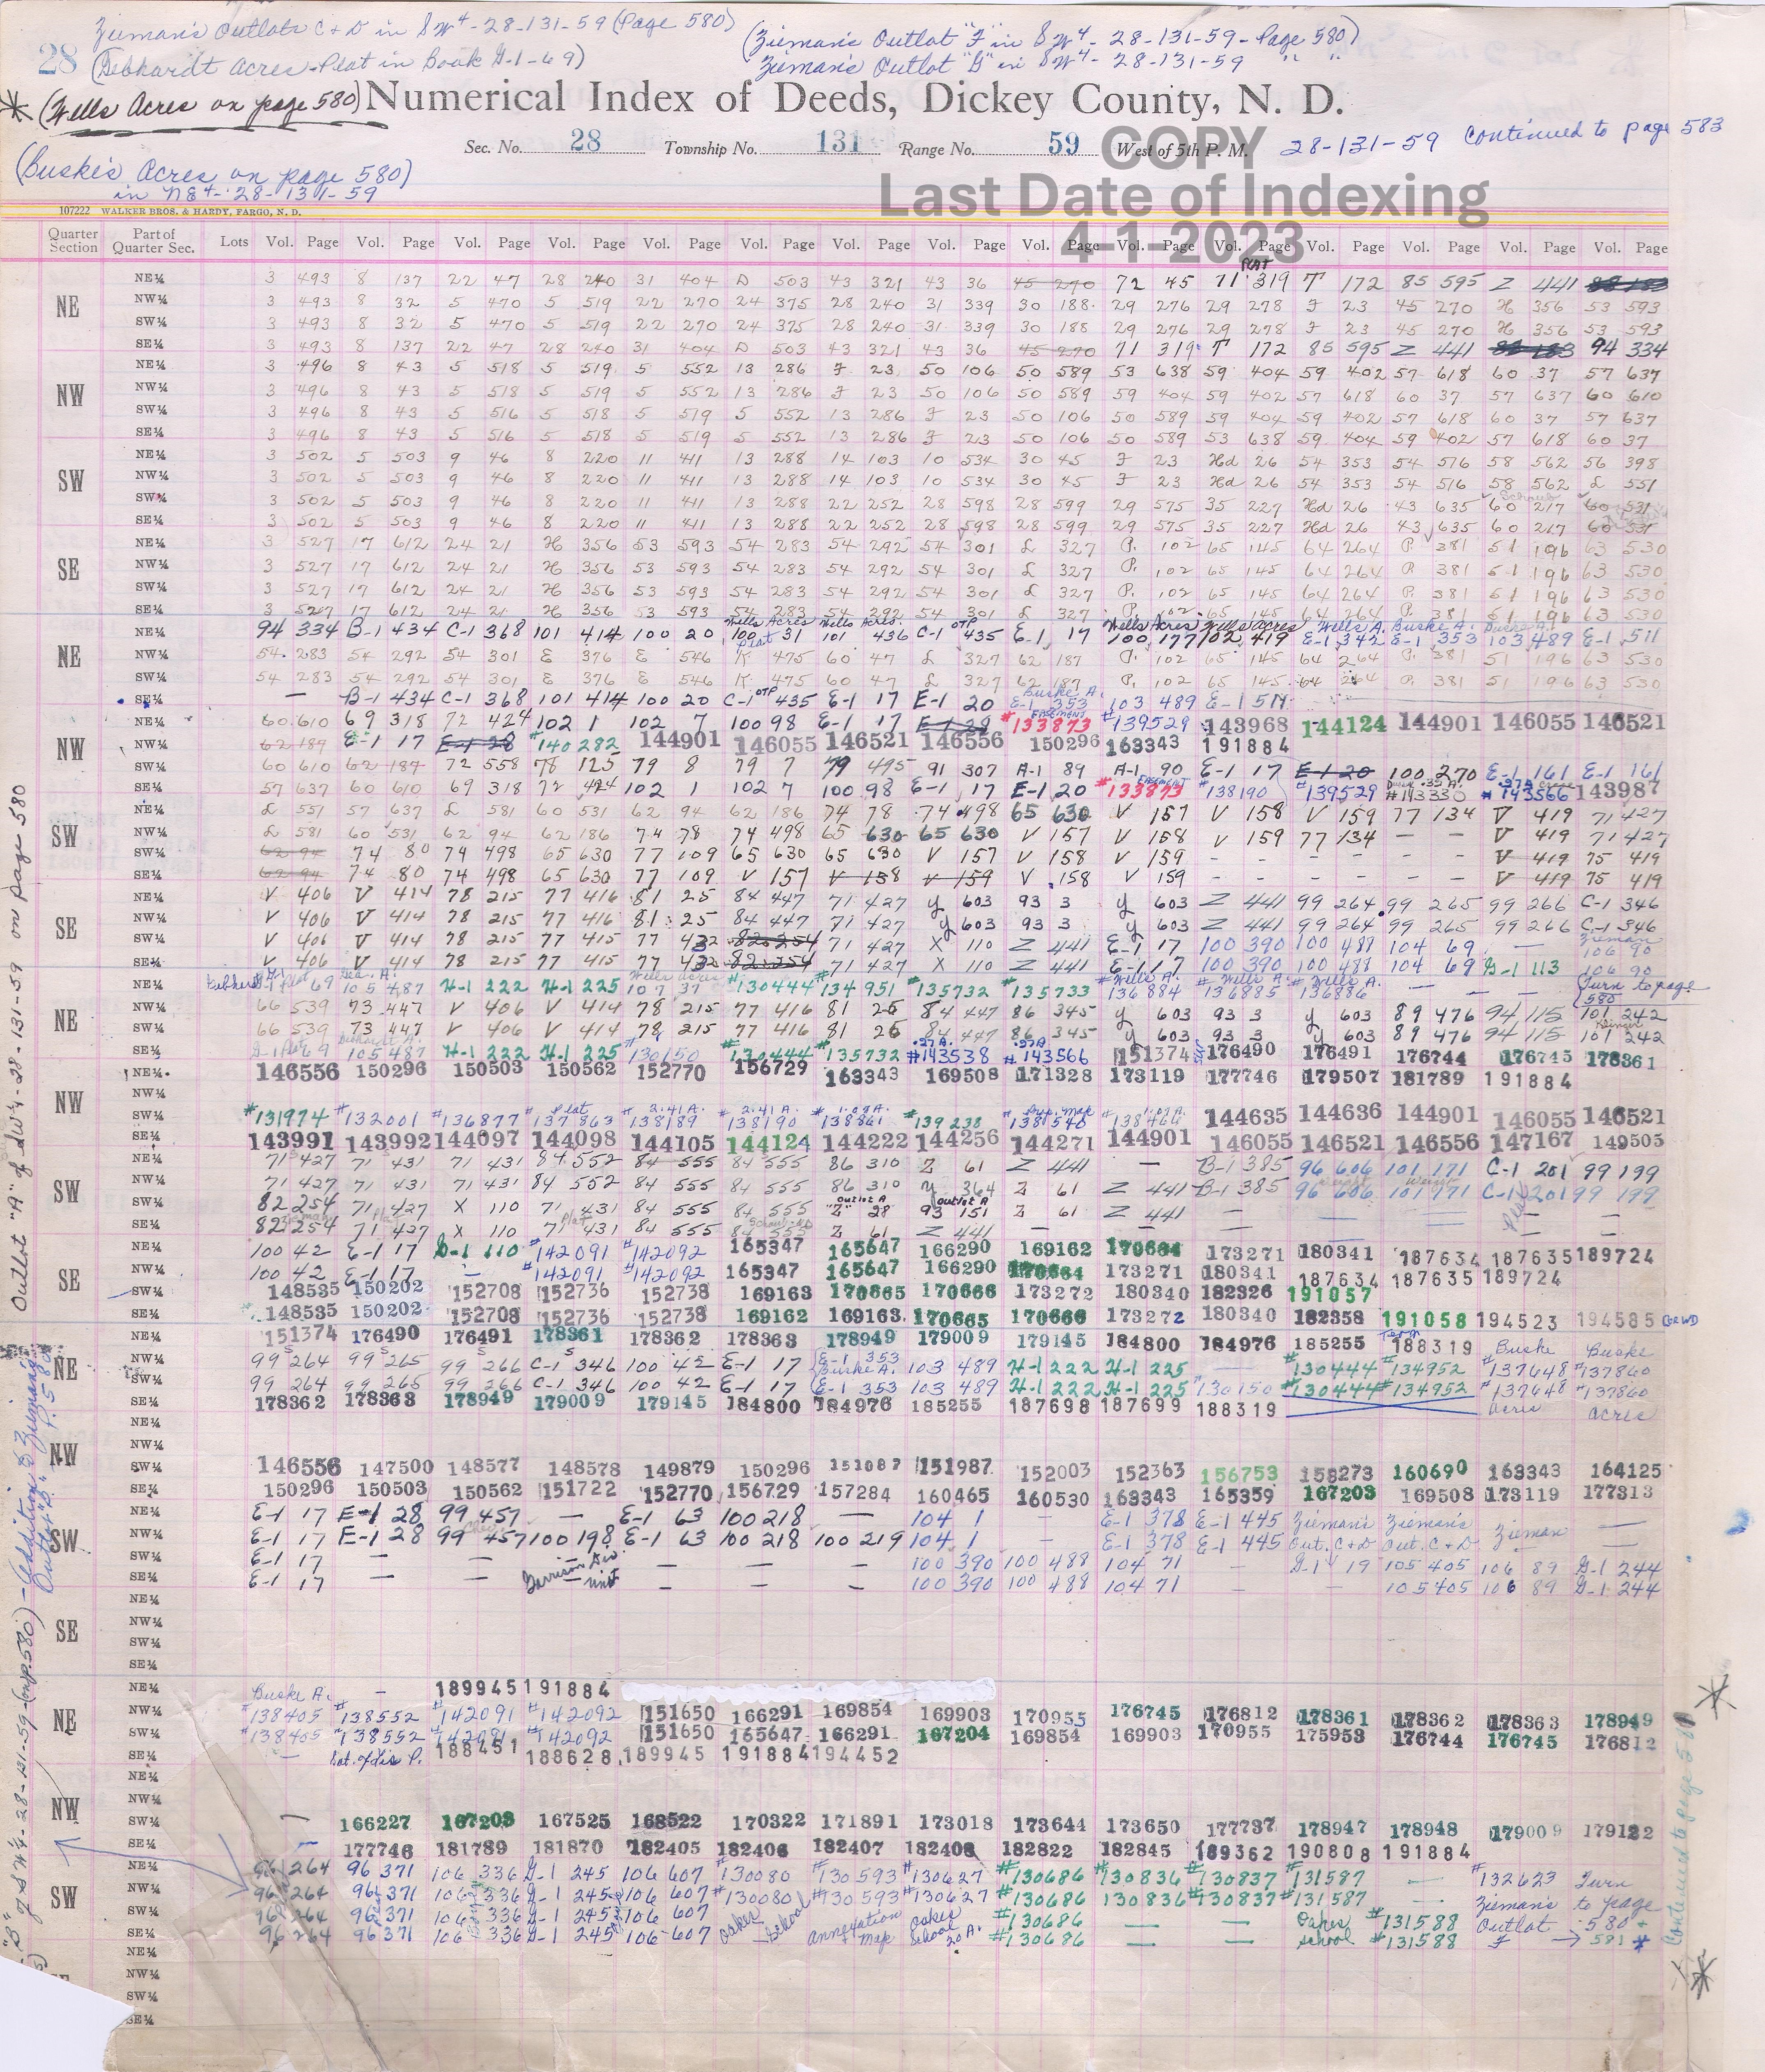 Zieman's Outlots C & D in SW4-28-131-59 (Page 580)
(Zieman's Outlot "F" in SW4-28-131-59-Page 580)
28 (Gebhardt Acres-Plat in Book G-1-69)
Zieman's Outlot "G" in SW4-28-131-59 " "
* (Wells Acres on page 580) Numerical Index of Deeds, Dickey County, N. D.
Sec. No. 28 Township No. 131 Range No. 59 West of 5th P. M. 28-131-59 Continued to page 583
COPY
(Buske's Acres on page 580)
in NE4-28-131-59
Last Date of Indexing
4-1-2023
107222 WALKER BROS. & HARDY, FARGO, N. D.
Quarter Section Part of Quarter Sec. Lots Vol. Page Vol. Page Vol. Page Vol. Page Vol. Page Vol. Page Vol. Page Vol. Page Vol. Page Vol. Page Vol. Page Vol. Page Vol. Page Vol. Page Vol. Page
NE NE¼ 3 493 8 137 22 47 28 240 31 404 D 503 43 321 43 36 45 270 72 45 71 319 T 172 85 595 Z 441
NW¼ 3 493 8 32 5 470 5 519 22 270 24 375 28 240 31 339 30 188 29 276 29 278 F 23 45 270 H 356 53 593
SW¼ 3 493 8 32 5 470 5 519 22 270 24 375 28 240 31 339 30 188 29 276 29 278 F 23 45 270 H 356 53 593
SE¼ 3 493 8 137 22 47 28 240 31 404 D 503 43 321 43 36 45 270 71 319 T 172 85 595 Z 441 94 334
NW NE¼ 3 496 8 43 5 518 5 519 5 552 13 286 F 23 50 106 50 589 53 638 59 404 59 402 57 618 60 37 57 637
NW¼ 3 496 8 43 5 518 5 519 5 552 13 286 F 23 50 106 50 589 59 404 59 402 57 618 60 37 57 637 60 610
SW¼ 3 496 8 43 5 516 5 518 5 519 5 552 13 286 F 23 50 106 50 589 59 404 59 402 57 618 60 37 57 637
SE¼ 3 496 8 43 5 516 5 518 5 519 5 552 13 286 F 23 50 106 50 589 53 638 59 404 59 402 57 618 60 37
SW NE¼ 3 502 5 503 9 46 8 220 11 411 13 288 14 103 10 534 30 45 F 23 Hd 26 54 353 54 516 58 562 56 398
NW¼ 3 502 5 503 9 46 8 220 11 411 13 288 14 103 10 534 30 45 F 23 Hd 26 54 353 54 516 58 562 L 551
SW¼ 3 502 5 503 9 46 8 220 11 411 13 288 22 252 28 598 28 599 29 575 35 227 Hd 26 43 635 60 217 60 531
SE¼ 3 502 5 503 9 46 8 220 11 411 13 288 22 252 28 598 28 599 29 575 35 227 Hd 26 43 635 60 217 60 531
SE NE¼ 3 527 17 612 24 21 H 356 53 593 54 283 54 292 54 301 L 327 P. 102 65 145 64 264 P. 381 51 196 63 530
NW¼ 3 527 17 612 24 21 H 356 53 593 54 283 54 292 54 301 L 327 P. 102 65 145 64 264 P. 381 51 196 63 530
SW¼ 3 527 17 612 24 21 H 356 53 593 54 283 54 292 54 301 L 327 P. 102 65 145 64 264 P. 381 51 196 63 530
SE¼ 3 527 17 612 24 21 H 356 53 593 54 283 54 292 54 301 L 327 P. 102 65 145 64 264 P. 381 51 196 63 530
NE NE¼ 94 334 B-1 434 C-1 368 101 414 100 20 100 31 101 436 C-1 435 E-1 17 100 177 102 419 E-1 342 E-1 353 103 489 E-1 511
NW¼ 54 283 54 292 54 301 E 376 E 546 K 475 60 47 L 327 62 187 P. 102 65 145 64 264 P. 381 51 196 63 530
SW¼ 54 283 54 292 54 301 E 376 E 546 K 475 60 47 L 327 62 187 P. 102 65 145 64 264 P. 381 51 196 63 530
SE¼ — B-1 434 C-1 368 101 414 100 20 C-1 435 E-1 17 E-1 20 E-1 353 103 489 E-1 511
NW NE¼ 60 610 69 318 72 424 102 1 102 7 100 98 E-1 17 E-1 28 #133873 #139529 143968 144124 144901 146055 146521
NW¼ 62 189 E-1 17 E-1 28 #140282 144901 146055 146521 146556 150296 163343 191884
SW¼ 60 610 62 187 72 558 78 125 79 8 79 7 79 495 91 307 A-1 89 A-1 90 E-1 17 E-1 20 100 270 E-1 161 E-1 161
SE¼ 57 637 60 610 69 318 72 424 102 1 102 7 100 98 E-1 17 E-1 20 #133873 #138190 #139529 #143330 #143566 143987
SW NE¼ L 551 57 637 L 581 60 531 62 94 62 186 74 78 74 498 65 630 V 157 V 158 V 159 77 134 V 419 71 427
NW¼ L 581 60 531 62 94 62 186 74 78 74 498 65 630 65 630 V 157 V 158 V 159 77 134 — — V 419 71 427
SW¼ 62 94 74 80 74 498 65 630 77 109 65 630 65 630 V 157 V 158 V 159 - - - - - - V 419 75 419
SE¼ 62 94 74 80 74 498 65 630 77 109 V 157 V 158 V 159 V 158 V 159 - - - - - - V 419 75 419
SE NE¼ V 406 V 414 78 215 77 416 81 25 84 447 71 427 Y 603 93 3 Y 603 Z 441 99 264 99 265 99 266 C-1 346
NW¼ V 406 V 414 78 215 77 416 81 25 84 447 71 427 Y 603 93 3 Y 603 Z 441 99 264 99 265 99 266 C-1 346
SW¼ V 406 V 414 78 215 77 415 77 432 82 254 71 427 X 110 Z 441 E-1 17 100 390 100 487 104 69 — 106 90
SE¼ V 406 V 414 78 215 77 415 77 432 82 254 71 427 X 110 Z 441 E-1 17 100 390 100 488 104 69 G-1 113 106 90
NE NE¼ 105 487 H-1 222 H-1 225 107 37 #130444 #134951 #135732 #135733 #136884 #136885 #136886 — — Turn to page 580
NW¼ 66 539 73 447 V 406 V 414 78 215 77 416 81 26 84 447 86 345 Y 603 93 3 Y 603 89 476 94 115 101 242
SW¼ 66 539 73 447 V 406 V 414 78 215 77 416 81 26 84 447 86 345 Y 603 93 3 Y 603 89 476 94 115 101 242
SE¼ G-1 69 105 487 H-1 222 H-1 225 #130150 #130444 #135732 #143538 #143566 151374 176490 176491 176744 176745 178361
NW NE¼ 146556 150296 150503 150562 152770 156729 163343 169508 171328 173119 177746 179507 181789 191884
NW¼
SW¼ #131974 #132001 #136877 #137863 #138189 #138190 #138861 #139238 138540 #138464 144635 144636 144901 146055 146521
SE¼ 143991 143992 144097 144098 144105 144124 144222 144256 144271 144901 146055 146521 146556 147167 149503
SW NE¼ 71 427 71 431 71 431 84 552 84 555 84 555 86 310 Z 61 Z 441 — B-1 385 96 606 101 171 C-1 201 99 199
NW¼ 71 427 71 431 71 431 84 552 84 555 84 555 86 310 Y 364 Z 61 Z 441 B-1 385 96 606 101 171 C-1 201 99 199
SW¼ 82 254 71 427 X 110 71 431 84 555 84 555 "Z" 28 93 151 Z 61 Z 441
SE¼ 82 254 71 427 X 110 71 431 84 555 84 555 Z 61 Z 441
SE NE¼ 100 42 E-1 17 G-1 110 #142091 #142092 165347 165647 166290 169162 170664 173271 180341 187634 187635 189724
NW¼ 100 42 E-1 17 — #142091 #142092 165347 165647 166290 170664 173271 180341 187634 187635 189724
SW¼ 148535 150202 152708 152736 152738 169163 170665 170666 173272 180340 182326 191057
SE¼ 148535 150202 152708 152736 152738 169162 169163 170665 170666 173272 180340 182358 191058 194523 194585
NE NE¼ 151374 176490 176491 178361 178362 178363 178949 179009 179145 184800 184976 185255 188319 Buske Buske
NW¼ 99 264 99 265 99 266 C-1 346 100 42 E-1 17 E-1 353 103 489 H-1 222 H-1 225 — #130444 #134952 #137648 #137860
SW¼ 99 264 99 265 99 266 C-1 346 100 42 E-1 17 E-1 353 103 489 H-1 222 H-1 225 #130150 #130444 #134952 #137648 #137860
SE¼ 178362 178363 178949 179009 179145 184800 184976 185255 187698 187699 188319 acres acres
NW NE¼
NW¼
SW¼ 146556 147500 148577 148578 149879 150296 151087 151987 152003 152363 156753 158273 160690 163343 164125
SE¼ 150296 150503 150562 151722 152770 156729 157284 160465 160530 163343 165359 167203 169508 173119 177313
SW NE¼ E-1 17 E-1 28 99 457 — E-1 63 100 218 — 104 1 — E-1 378 E-1 445 Zieman's Zieman's Zieman —
NW¼ E-1 17 E-1 28 99 457 100 198 E-1 63 100 218 100 219 104 1 — E-1 378 E-1 445 Out. C+D Out. C+D
SW¼ E-1 17 — — Garrison Div. — — — 100 390 100 488 104 71 — G-1 19 105 405 106 89 G-1 244
SE¼ E-1 17 — — Unit — — — 100 390 100 488 104 71 — — 105 405 106 89 G-1 244
SE NE¼
NW¼
SW¼
SE¼
NE NE¼ Buske A. — 189945 191884
NW¼ #138405 #138552 #142091 #142092 151650 166291 169854 169903 170955 176745 176812 178361 178362 178363 178949
SW¼ #138405 #138552 #142091 #142092 151650 165647 166291 167204 169854 169903 170955 175953 176744 176745 176812
SE¼ — 188451 188628 189945 191884 194452
NW NE¼
NW¼
SW¼ — 166227 167203 167525 168522 170322 171891 173018 173644 173650 177737 178947 178948 179009 179122
SE¼ — 177746 181789 181870 182405 182406 182407 182408 182822 182845 189362 190808 191884
SW NE¼ 96 264 96 371 106 336 G-1 245 106 607 #130080 #130593 #130627 #130686 #130836 #130837 #131587 — #132623 Turn
NW¼ 96 264 96 371 106 336 G-1 245 106 607 #130080 #130593 #130627 #130686 130836 #130837 #131587 — Zieman's to page
SW¼ 96 264 96 371 106 336 G-1 245 106 607 Oakes School Annexation Oakes #130686 — — Oakes #131588 Outlot 580 +
SE¼ 96 264 96 371 106 336 G-1 245 106 607 Map School 20 A. #130686 — — School #131588 F → 581 *
NE¼
NW¼
SW¼
SE¼
Outlot "A" of SW¼-28-131-59 on page 580